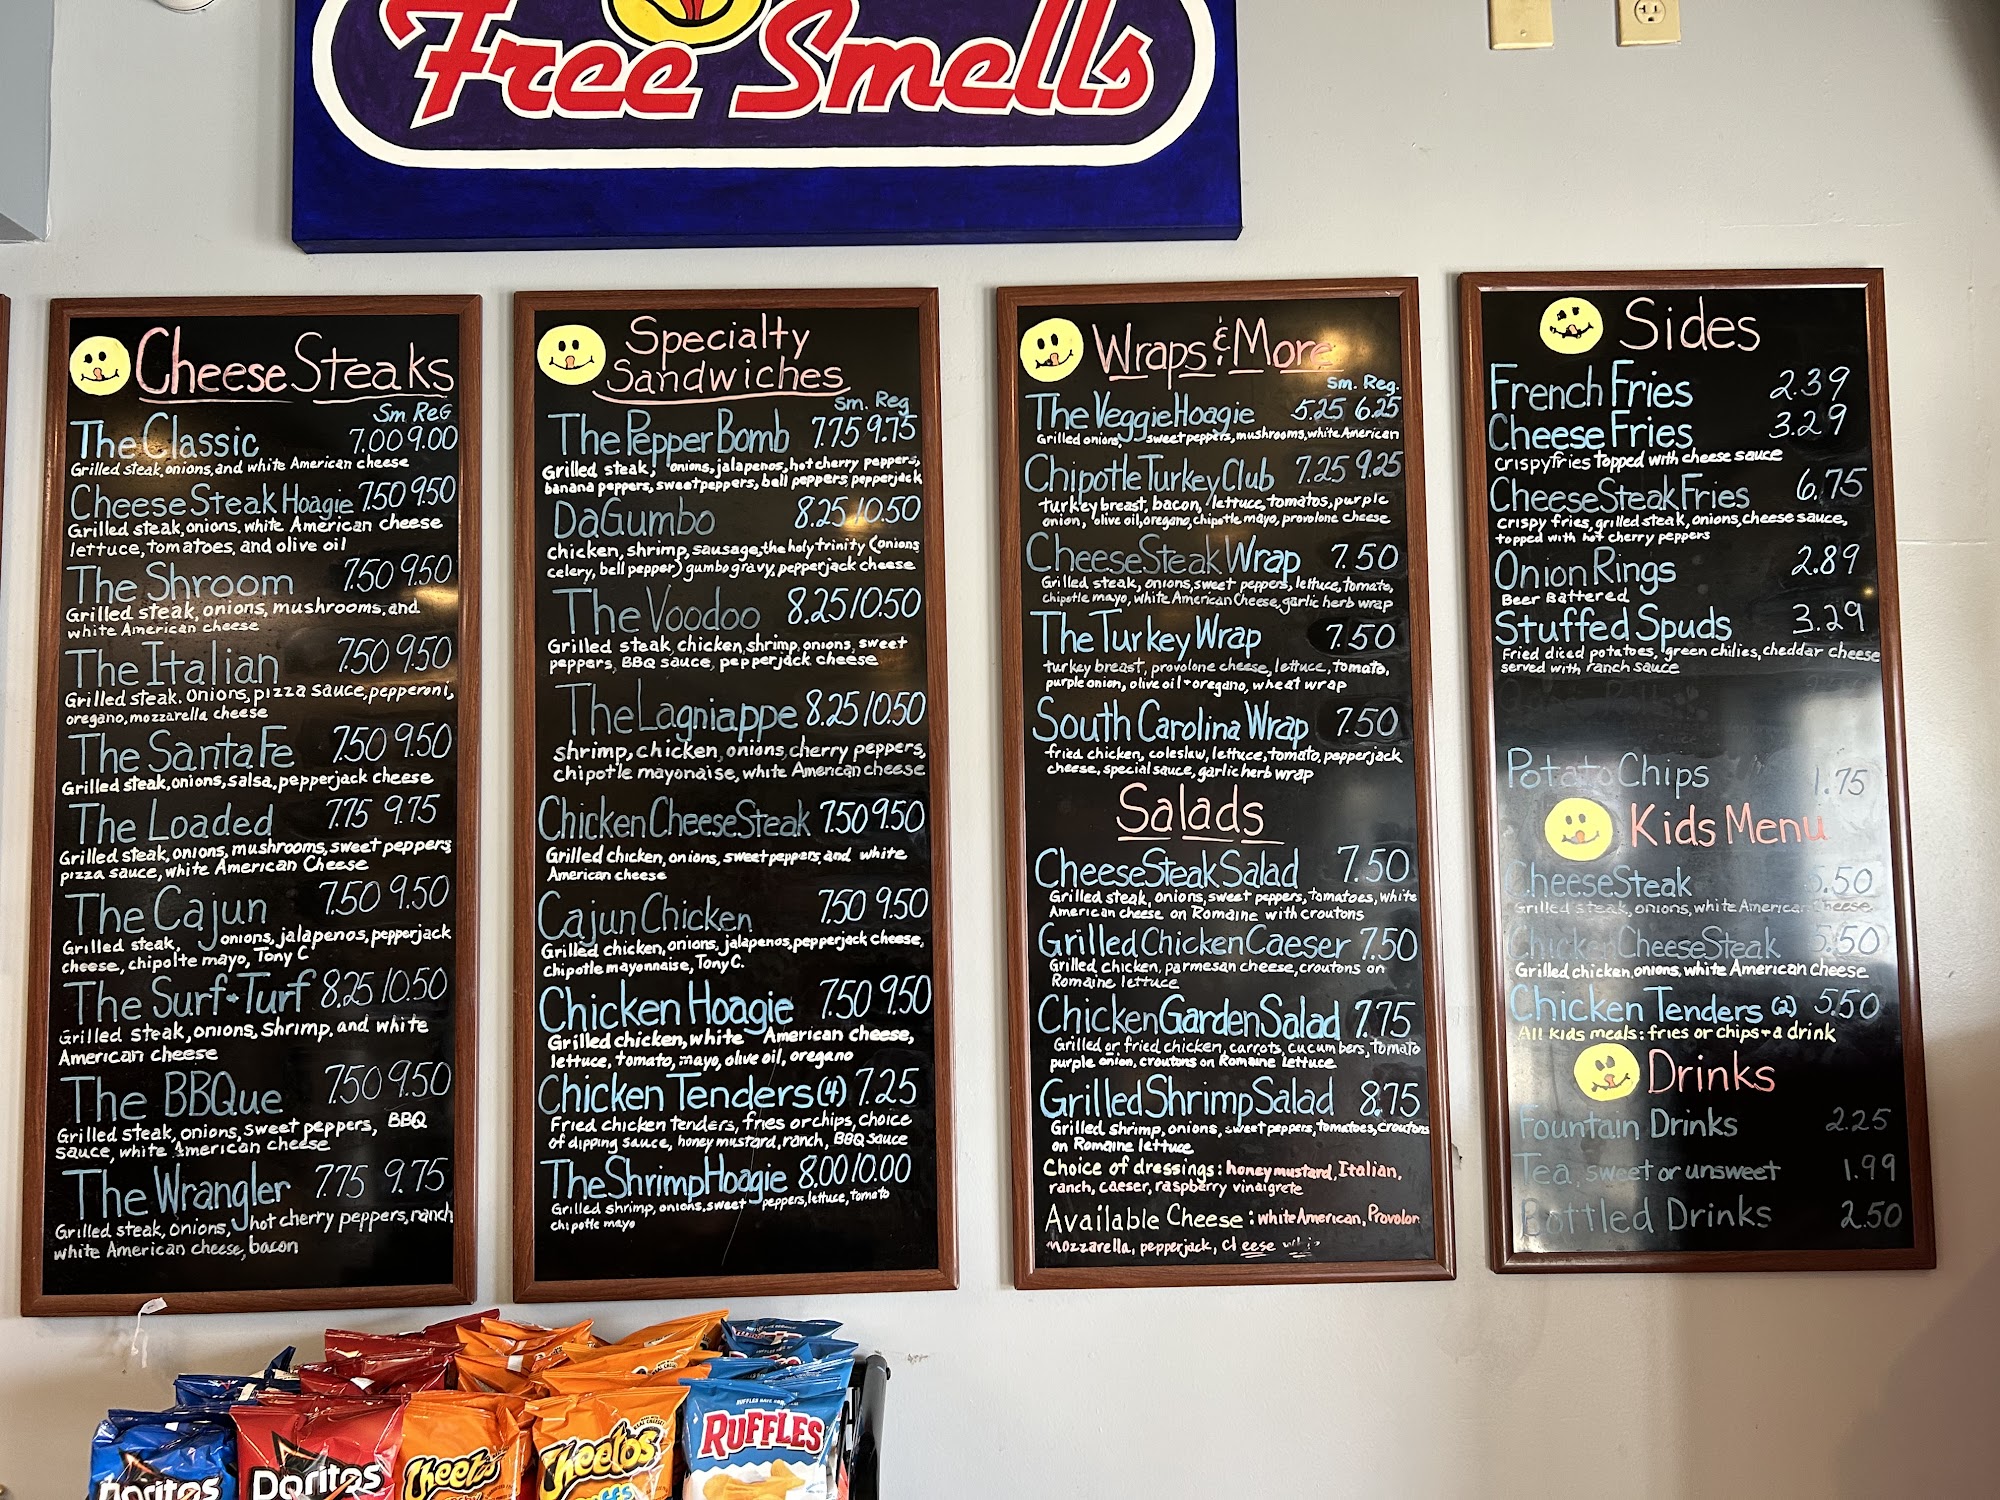 Free Smells
Cheese Steaks
Sm Reg
The Classic 7.00 9.00
Grilled steak, onions, and white American cheese
Cheese Steak Hoagie 7.50 9.50
Grilled steak, onions, white American cheese
lettuce, tomatoes, and olive oil
The Shroom 7.50 9.50
Grilled steak, onions, mushrooms, and
white American cheese
The Italian 7.50 9.50
Grilled steak. Onions, pizza sauce, pepperoni,
oregano, mozzarella cheese
The Santa Fe 7.50 9.50
Grilled steak, onions, salsa, pepperjack cheese
The Loaded 7.75 9.75
Grilled steak, onions, mushrooms, sweet peppers
pizza sauce, white American Cheese
The Cajun 7.50 9.50
Grilled steak, onions, jalapenos, pepperjack
cheese, chipolte mayo, Tony C
The Surf & Turf 8.25 10.50
Grilled steak, onions, shrimp, and white
American cheese
The BBQue 7.50 9.50
Grilled steak, onions, sweet peppers, BBQ
sauce, white American cheese
The Wrangler 7.75 9.75
Grilled steak, onions, hot cherry peppers, ranch
white American cheese, bacon
Specialty
Sandwiches
Sm. Reg
The Pepper Bomb 7.75 9.75
Grilled steak, onions, jalapenos, hot cherry peppers,
banana peppers, sweet peppers, bell peppers, pepperjack
DaGumbo 8.25 10.50
chicken, shrimp, sausage, the holy trinity (onions
celery, bell pepper) gumbo gravy, pepperjack cheese
The Voodoo 8.25 10.50
Grilled steak, chicken, shrimp, onions, sweet
peppers, BBQ sauce, pepperjack cheese
The Lagniappe 8.25 10.50
shrimp, chicken, onions, cherry peppers,
chipotle mayonaise, white American cheese
Chicken Cheese Steak 7.50 9.50
Grilled chicken, onions, sweet peppers, and white
American cheese
Cajun Chicken 7.50 9.50
Grilled chicken, onions, jalapenos, pepperjack cheese,
Chipotle mayonnaise, Tony C.
Chicken Hoagie 7.50 9.50
Grilled chicken, white American cheese,
lettuce, tomato, mayo, olive oil, oregano
Chicken Tenders (4) 7.25
Fried chicken tenders, fries or chips, choice
of dipping sauce, honey mustard, ranch, BBQ sauce
The Shrimp Hoagie 8.00 10.00
Grilled shrimp, onions, sweet peppers, lettuce, tomato
chipotle mayo
Wraps & More
Sm. Reg.
The Veggie Hoagie 5.25 6.25
Grilled onions, sweet peppers, mushrooms, white American
Chipotle Turkey Club 7.25 9.25
turkey breast, bacon, lettuce, tomatos, purple
onion, olive oil, oregano, chipotle mayo, provolone cheese
Cheese Steak Wrap 7.50
Grilled steak, onions, sweet peppers, lettuce, tomato,
chipotle mayo, white American Cheese, garlic herb wrap
The Turkey Wrap 7.50
turkey breast, provolone cheese, lettuce, tomato,
purple onion, olive oil + oregano, wheat wrap
South Carolina Wrap 7.50
fried chicken, coleslaw, lettuce, tomato, pepperjack
cheese, special sauce, garlic herb wrap
Salads
Cheese Steak Salad 7.50
Grilled steak, onions, sweet peppers, tomatoes, white
American cheese on Romaine with croutons
Grilled Chicken Caeser 7.50
Grilled chicken, parmesan cheese, croutons on
Romaine lettuce
Chicken Garden Salad 7.75
Grilled or fried chicken, carrots, cucumbers, tomato
purple onion, croutons on Romaine Lettuce
Grilled Shrimp Salad 8.75
Grilled shrimp, onions, sweet peppers, tomatoes, croutons
on Romaine lettuce
Choice of dressings: honey mustard, Italian,
ranch, caeser, raspberry vinaigrete
Available Cheese: white American, Provolon
mozzarella, pepperjack, cheese
Sides
French Fries 2.39
Cheese Fries 3.29
Crispy fries topped with cheese sauce
Cheese Steak Fries 6.75
Crispy fries, grilled steak, onions, cheese sauce,
topped with hot cherry peppers
Onion Rings 2.89
Beer Battered
Stuffed Spuds 3.29
Fried diced potatoes, green chilies, cheddar cheese
served with ranch sauce
Potato Chips 1.75
Kids Menu
Cheese Steak 5.50
Grilled steak, onions, white American cheese
Chicken Cheese Steak 5.50
Grilled chicken, onions, white American cheese
Chicken Tenders (2) 5.50
All kids meals: fries or chips + a drink
Drinks
Fountain Drinks 2.25
Tea, sweet or unsweet 1.99
Bottled Drinks 2.50
Doritos
Doritos
Cheetos
Cheetos
Puffs
RUFFLES